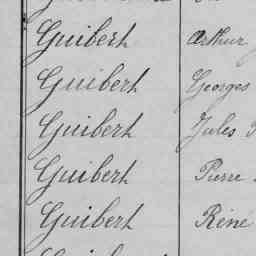 Guibert Arthur
Guibert Georges
Guibert Jules
Guibert Pierre
Guibert René